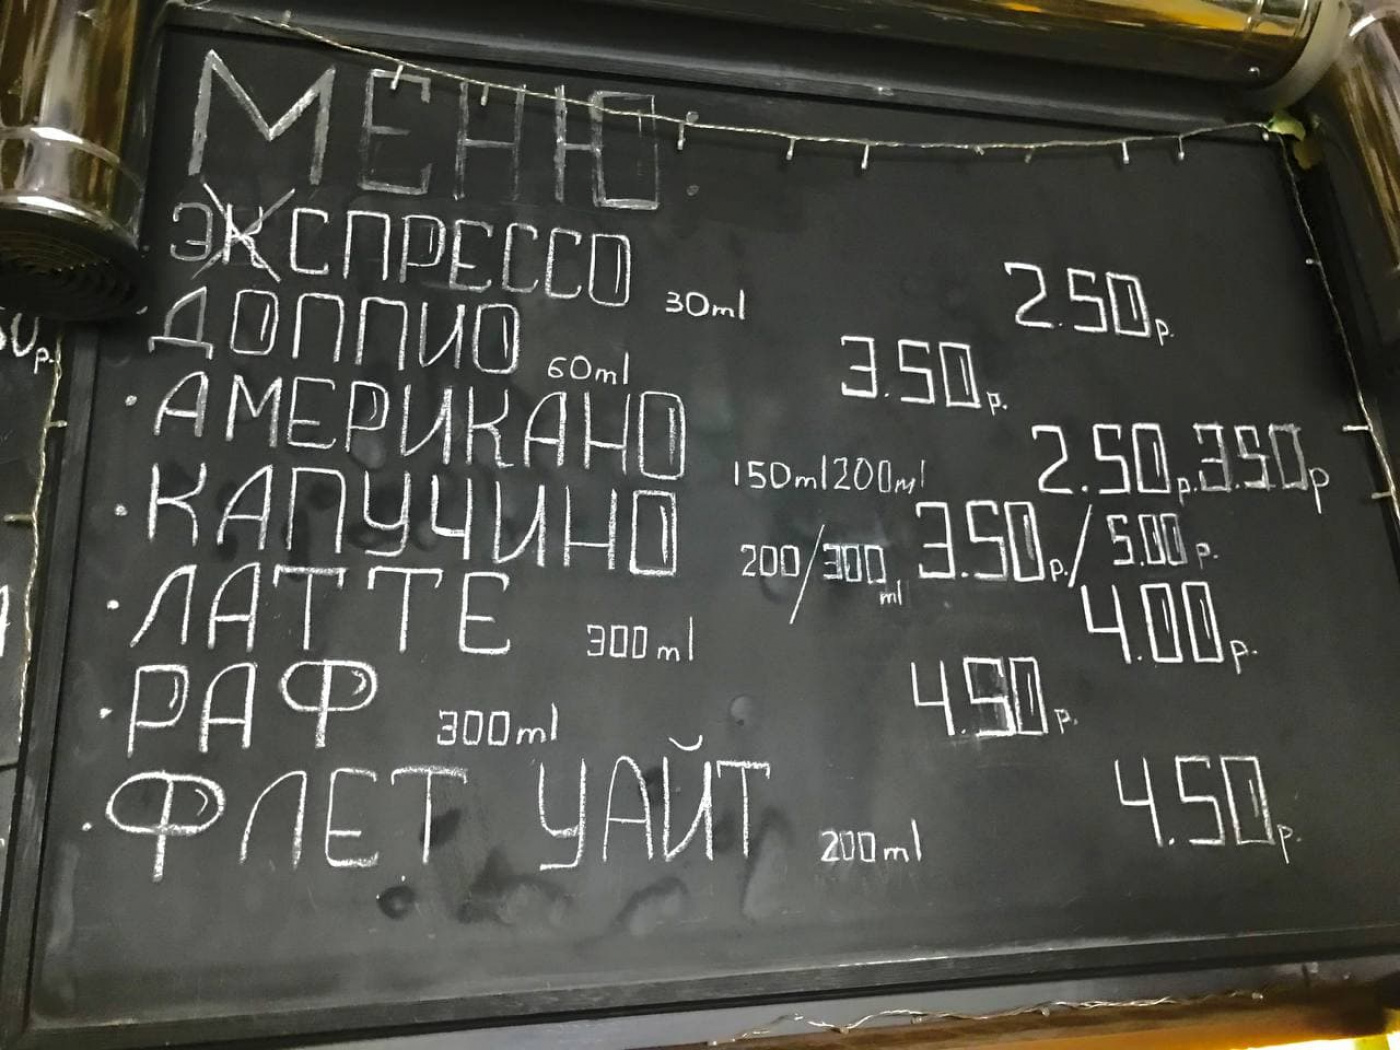 МЕНЮ:
ЭКСПРЕССО 30ml 2.50р.
ДОППИО 60ml 3.50р.
· АМЕРИКАНО 150ml 200ml 2.50р. 3.50р
· КАПУЧИНО 200/300 ml 3.50р./5.00р.
· ЛАТТЕ 300ml 4.00р.
· РАФ 300ml 4.50р.
· ФЛЕТ УАЙТ 200ml 4.50р.